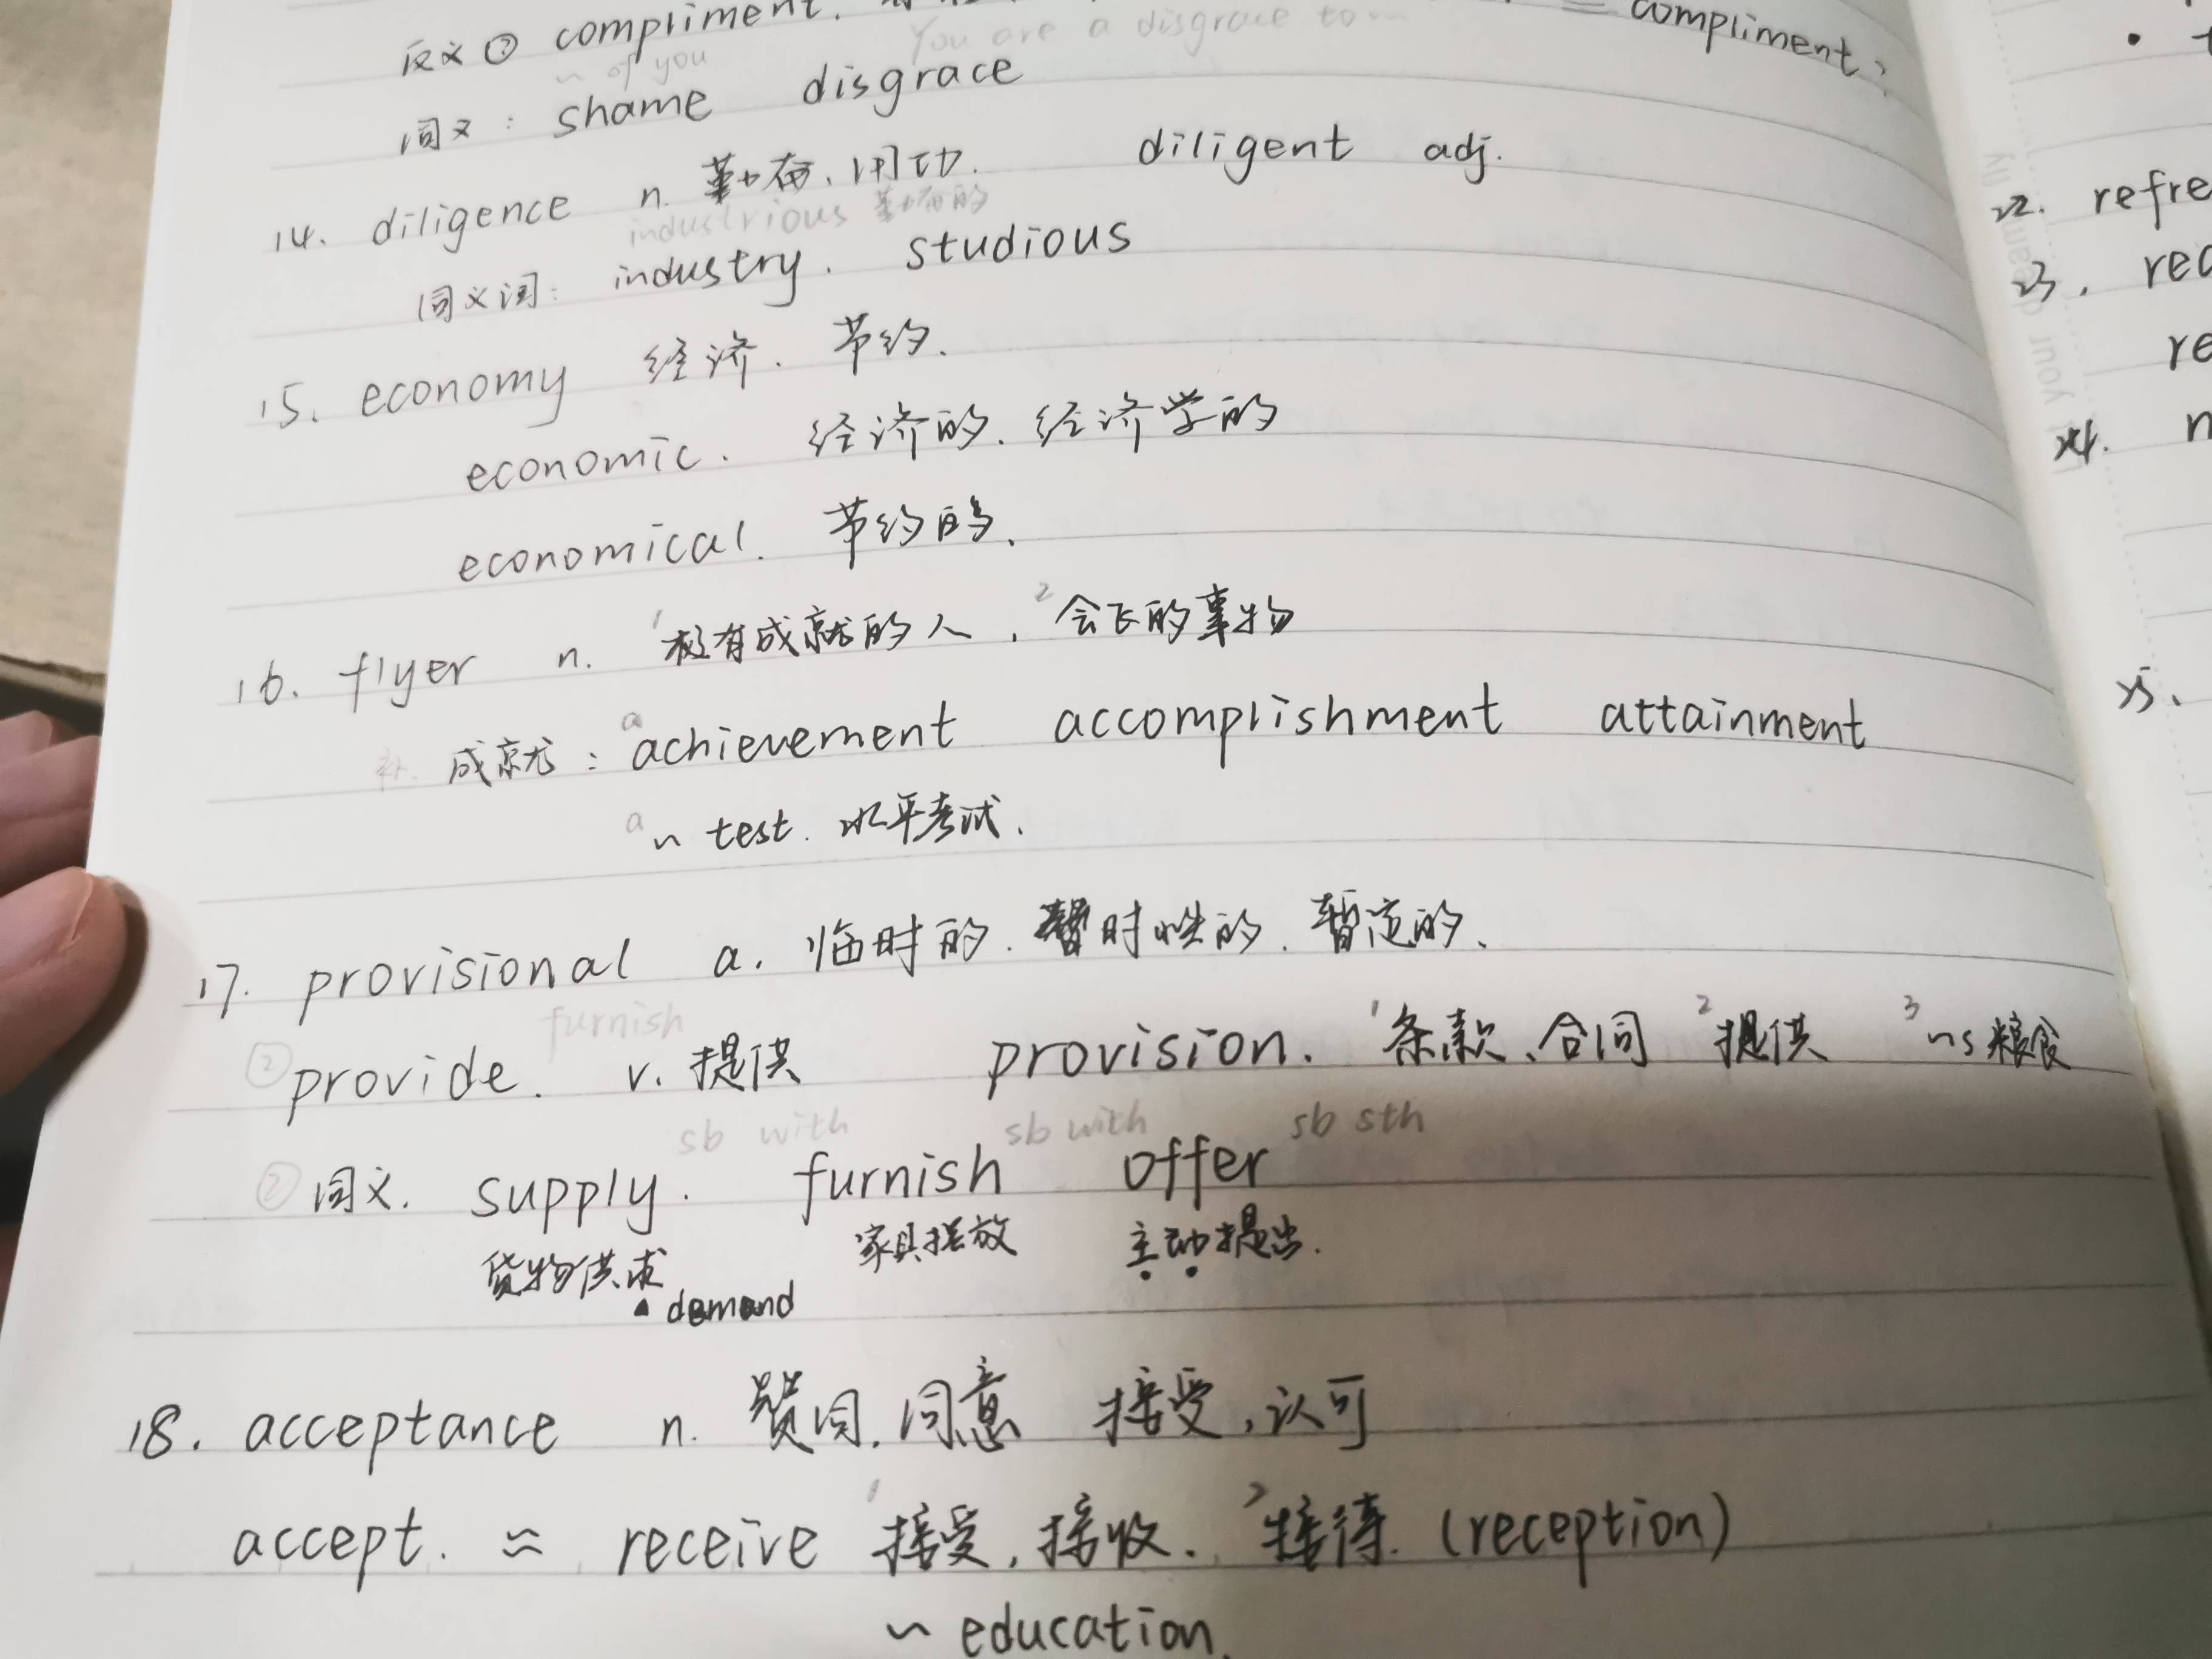 反义 ② compliment.
= compliment,
~ of you
You are a disgrace to
同义: shame disgrace
14. diligence n. 勤奋、用功. diligent adj.
industrious 勤奋的
同义词: industry. studious
15. economy 经济. 节约.
economic. 经济的. 经济学的
economical. 节约的.
16. flyer n. 1 极有成就的人, 2 会飞的事物
补. 成就: a achievement accomplishment attainment
a ~ test. 水平考试.
17. provisional a. 临时的. 暂时性的. 暂定的.
furnish
② provide. v. 提供 provision. 1 条款、合同 2 提供 3 ~s 粮食
sb with sb with sb sth
② 同义. supply. furnish offer
货物供求 家具摆放 主动提出.
demand
18. acceptance n. 赞同. 同意 接受, 认可
accept. ≈ receive 1 接受, 接收. 2 接待. (reception)
~ education.
22. refre
23. rec
re
24. n
25.